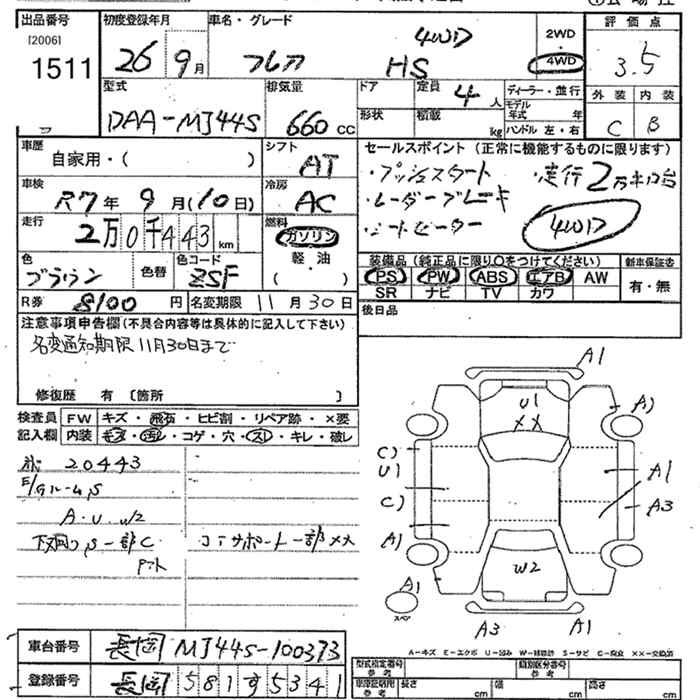 出品番号 初度登録年月 車名・グレード 評価点
[2006]
1511
26 9月 フレア HS 4WD
2WD・4WD
3.5
型式 排気量 ドア 定員 ディーラー・並行 外装 内装
DAA-MJ44S 660CC
4人
モデル年式 年
形状 積載 kg ハンドル 左・右
C B
車歴 シフト セールスポイント(正常に機能するものに限ります)
自家用・( ) AT
・プッシュスタート ・走行2万キロ台
車検 冷房
R7年9月(10日) AC
・レーダーブレーキ
・シートヒーター 4WD
走行 燃料
2万0千443km ガソリン
軽・油
( )
色 色替 色コード
ブラウン ZSF
装備品(純正品に限り○をつけてください) 新車保証書
PS PW ABS エアB AW 有・無
SR ナビ TV カワ
R券 8100円 名変期限 11月30日
後日品
注意事項申告欄(不具合内容等は具体的に記入して下さい)
名変通知期限11月30日まで
修復歴 有 〔箇所 〕
検査員 FW キズ・飛石・ヒビ割・リペア跡・×要
記入欄 内装 キズ・汚レ・コゲ・穴・スレ・キレ・破レ
20443
A・U W2
下廻りS一部C コアサポート一部××
A1
U1
××
A1
C1
U1
A1
C1
A3
A1
W2
A1
スペア
A3 A1
A-キズ E-エクボ U-凹み W-補修跡 S-サビ C-腐食 ××-交換済
車台番号 長岡 MJ44S-100373
登録番号 長岡 581す5341
型式指定番号 類別区分番号
参考
車庫証明用 長さ 幅 高さ
参考 cm cm cm